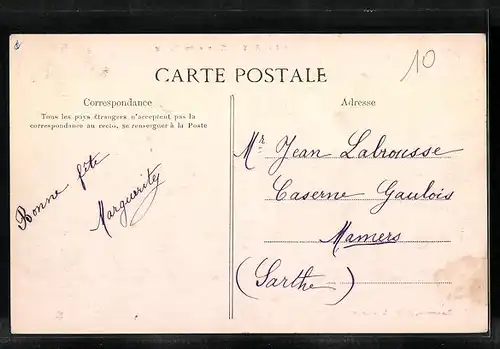 10
CARTE POSTALE
Correspondance
Tous les pays étrangers n'acceptent pas la
correspondance au recto, se renseigner à la Poste
Bonne fête
Marguerity
Adresse
Mr Jean Labrousse
Caserne Gaulois
Mamers
(Sarthe)